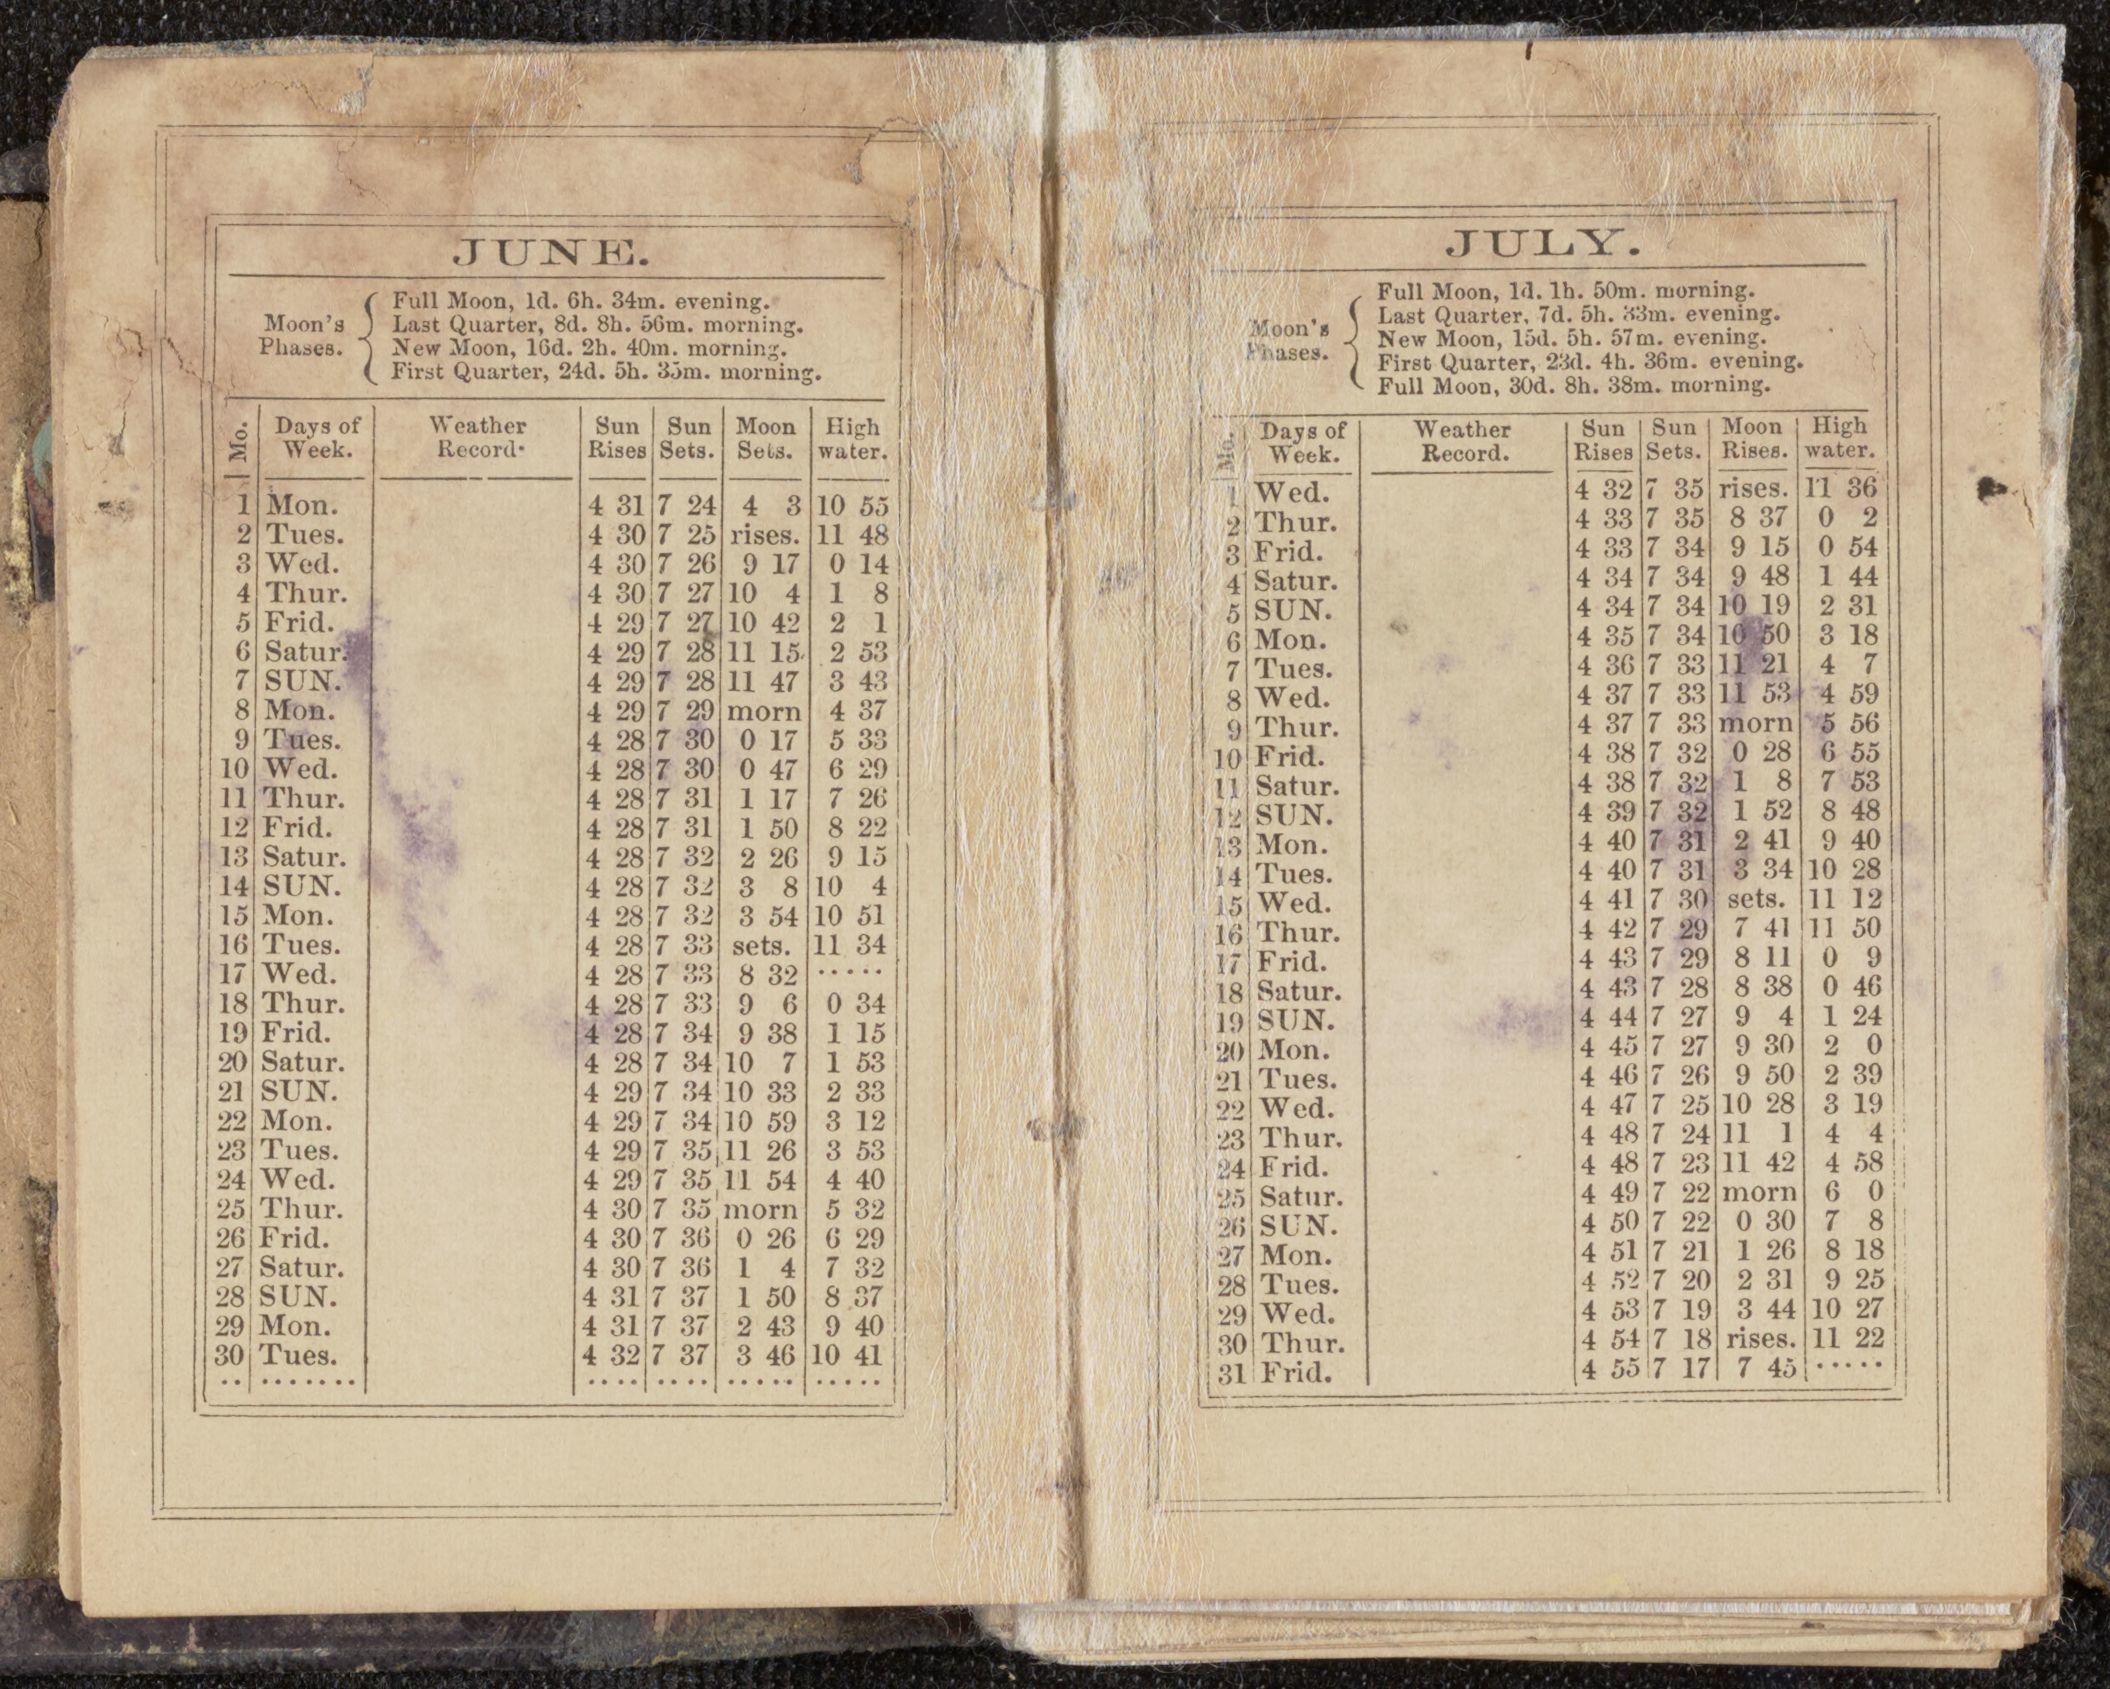 JUNE.
Moon's Phases.
Full Moon, 1d. 6h. 34m. evening.
Last Quarter, 8d. 8h. 56m. morning.
New Moon, 16d. 2h. 40m. morning.
First Quarter, 24d. 5h. 35m. morning.
Mo. Days of Week. Weather Record. Sun Rises Sun Sets. Moon Sets. High water.
1 Mon. 4 31 7 24 4 3 10 55
2 Tues. 4 30 7 25 rises. 11 48
3 Wed. 4 30 7 26 9 17 0 14
4 Thur. 4 30 7 27 10 4 1 8
5 Frid. 4 29 7 27 10 42 2 1
6 Satur. 4 29 7 28 11 15 2 53
7 SUN. 4 29 7 28 11 47 3 43
8 Mon. 4 29 7 29 morn 4 37
9 Tues. 4 28 7 30 0 17 5 33
10 Wed. 4 28 7 30 0 47 6 29
11 Thur. 4 28 7 31 1 17 7 26
12 Frid. 4 28 7 31 1 50 8 22
13 Satur. 4 28 7 32 2 26 9 15
14 SUN. 4 28 7 32 3 8 10 4
15 Mon. 4 28 7 32 3 54 10 51
16 Tues. 4 28 7 33 sets. 11 34
17 Wed. 4 28 7 33 8 32 .....
18 Thur. 4 28 7 33 9 6 0 34
19 Frid. 4 28 7 34 9 38 1 15
20 Satur. 4 28 7 34 10 7 1 53
21 SUN. 4 29 7 34 10 33 2 33
22 Mon. 4 29 7 34 10 59 3 12
23 Tues. 4 29 7 35 11 26 3 53
24 Wed. 4 29 7 35 11 54 4 40
25 Thur. 4 30 7 35 morn 5 32
26 Frid. 4 30 7 36 0 26 6 29
27 Satur. 4 30 7 36 1 4 7 32
28 SUN. 4 31 7 37 1 50 8 37
29 Mon. 4 31 7 37 2 43 9 40
30 Tues. 4 32 7 37 3 46 10 41
.. ....... .... .... ..... .....
JULY.
Moon's Phases.
Full Moon, 1d. 1h. 50m. morning.
Last Quarter, 7d. 5h. 33m. evening.
New Moon, 15d. 5h. 57m. evening.
First Quarter, 23d. 4h. 36m. evening.
Full Moon, 30d. 8h. 38m. morning.
Mo. Days of Week. Weather Record. Sun Rises Sun Sets. Moon Rises. High water.
1 Wed. 4 32 7 35 rises. 11 36
2 Thur. 4 33 7 35 8 37 0 2
3 Frid. 4 33 7 34 9 15 0 54
4 Satur. 4 34 7 34 9 48 1 44
5 SUN. 4 34 7 34 10 19 2 31
6 Mon. 4 35 7 34 10 50 3 18
7 Tues. 4 36 7 33 11 21 4 7
8 Wed. 4 37 7 33 11 53 4 59
9 Thur. 4 37 7 33 morn 5 56
10 Frid. 4 38 7 32 0 28 6 55
11 Satur. 4 38 7 32 1 8 7 53
12 SUN. 4 39 7 32 1 52 8 48
13 Mon. 4 40 7 31 2 41 9 40
14 Tues. 4 40 7 31 3 34 10 28
15 Wed. 4 41 7 30 sets. 11 12
16 Thur. 4 42 7 29 7 41 11 50
17 Frid. 4 43 7 29 8 11 0 9
18 Satur. 4 43 7 28 8 38 0 46
19 SUN. 4 44 7 27 9 4 1 24
20 Mon. 4 45 7 27 9 30 2 0
21 Tues. 4 46 7 26 9 50 2 39
22 Wed. 4 47 7 25 10 28 3 19
23 Thur. 4 48 7 24 11 1 4 4
24 Frid. 4 48 7 23 11 42 4 58
25 Satur. 4 49 7 22 morn 6 0
26 SUN. 4 50 7 22 0 30 7 8
27 Mon. 4 51 7 21 1 26 8 18
28 Tues. 4 52 7 20 2 31 9 25
29 Wed. 4 53 7 19 3 44 10 27
30 Thur. 4 54 7 18 rises. 11 22
31 Frid. 4 55 7 17 7 45 .....